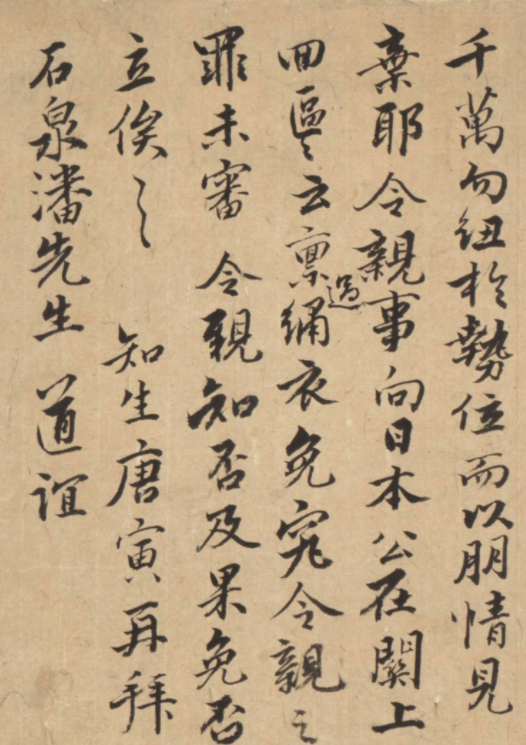 千萬勿紐於勢位而以朋情見
棄耶令親事向日本公在闕上
面區〻云稟過繡衣免究令親之
罪未審令親知否及果免否
立俟〻知生唐寅再拜
石泉潘先生道誼